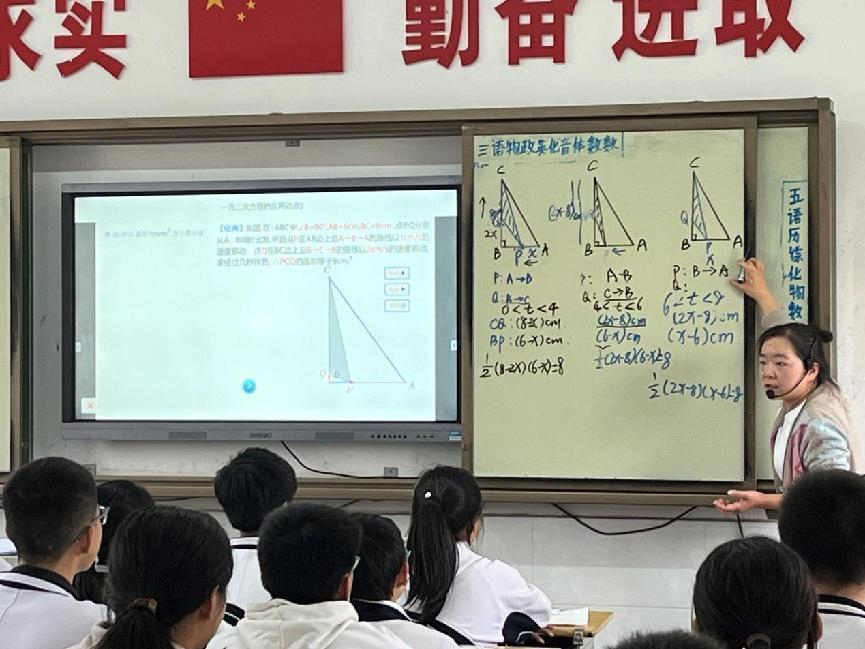 求实
勤奋进取
一元二次方程的应用动点2
【经典】如图,在△ABC中,∠B=90°,AB=6cm,BC=8cm,点P,Q分别
从A、B同时出发,并且点P在AB边上沿A→B→A的路线以1cm/s的
速度移动,点Q在BC边上沿B→C→B的路线以2cm/s的速度移动,
求经过几秒钟后,△PCQ的面积等于8cm²
C
Q
P
A
三 语物政英化音体数数
C
B
P
A
C
B
A
C
Q
B
P
A
x
P: A→B
Q: B→C
0<t<4
CQ: (8-2x)cm
BP: (6-x)cm
A-B
Q: C→B
4<t<6
(2x-8)cm
(6-x)cm
½(2x-8)(6-x)=8
P: B→A
Q:
6<t<8
(2x-8)cm
(x-6)cm
½(8-2x)(6-x)=8
½(2x-8)(x-6)=8
五语历综化物数